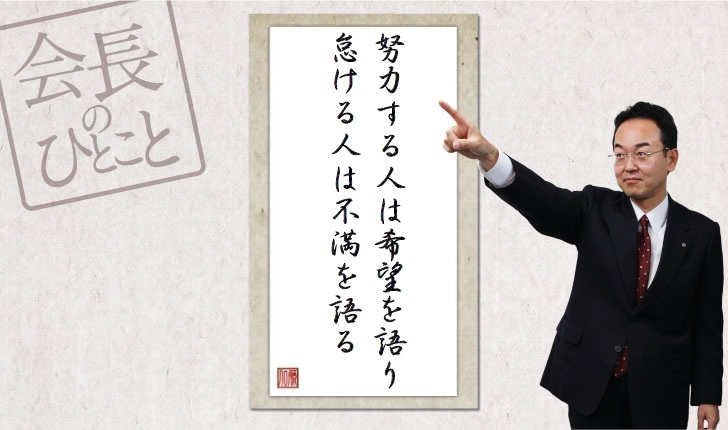 会長
の
ひとこと
努力する人は希望を語り
怠ける人は不満を語る